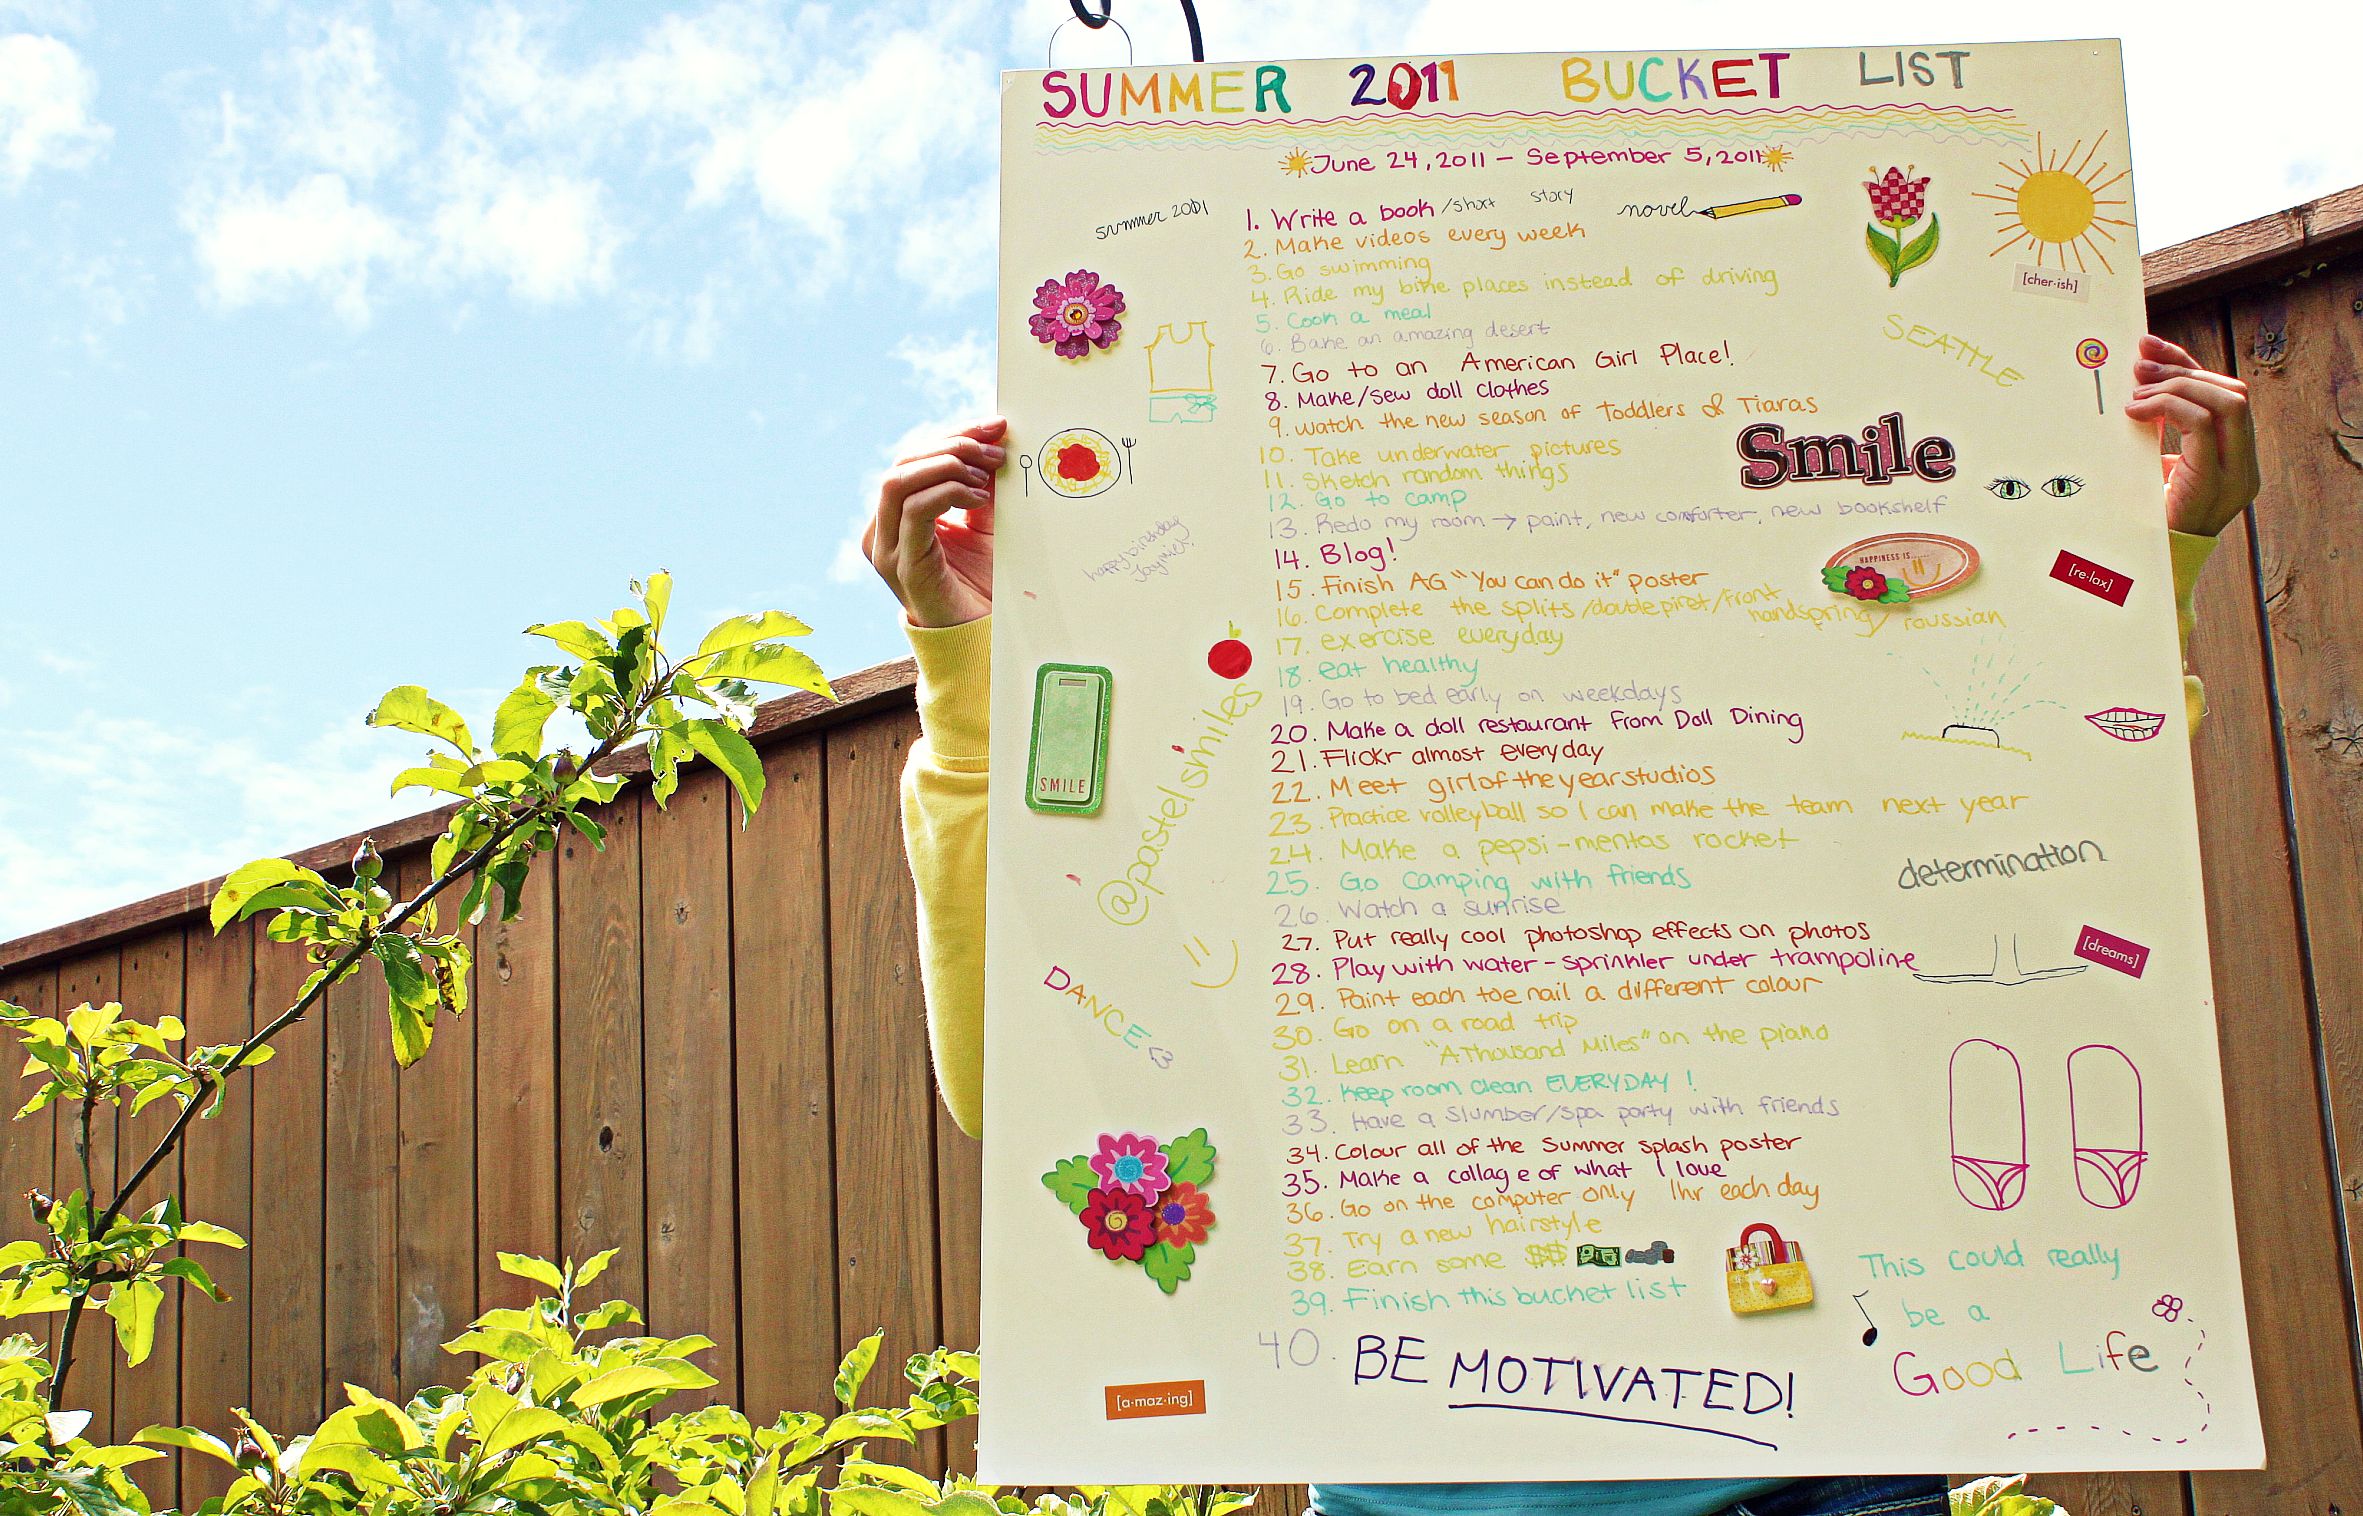 SUMMER 2011 BUCKET LIST
June 24, 2011 - September 5, 2011
summer 2001
1. Write a book/short story novel
2. Make videos every week
3. Go swimming
4. Ride my bike places instead of driving
[cher·ish]
5. Cook a meal
6. Bake an amazing desert
SEATTLE
7. Go to an American Girl Place!
8. Make/sew doll clothes
9. watch the new season of Toddlers & Tiaras
Smile
10. Take underwater pictures
11. Sketch random things
12. Go to camp
13. Redo my room → paint, new comfurter, new bookshelf
happy birthday
Jaymie!
14. Blog!
HAPPINESS IS......
[re·lax]
15. Finish AG "You can do it" poster
16. Complete the splits/double piret/front handspring/roussian
17. exercise everyday
18. eat healthy
19. Go to bed early on weekdays
20. Make a doll restaurant from Doll Dining
21. Flickr almost everyday
22. Meet girloftheyearstudios
SMILE
@pastelsmiles
23. Practice volleyball so I can make the team next year
24. Make a pepsi-mentos rocket
determination
25. Go camping with friends
26. Watch a sunrise
27. Put really cool photoshop effects on photos
[dreams]
28. Play with water-sprinkler under trampoline
DANCE <3
29. Paint each toe nail a different colour
30. Go on a road trip
31. Learn "A Thousand Miles" on the piano
32. Keep room clean EVERYDAY!
33. Have a slumber/spa party with friends
34. Colour all of the Summer splash poster
35. Make a collage of what I love
36. Go on the computer only 1hr each day
37. Try a new hairstyle
38. Earn some $$
39. Finish this bucket list
40. BE MOTIVATED!
This could really
be a
Good Life
[a·maz·ing]